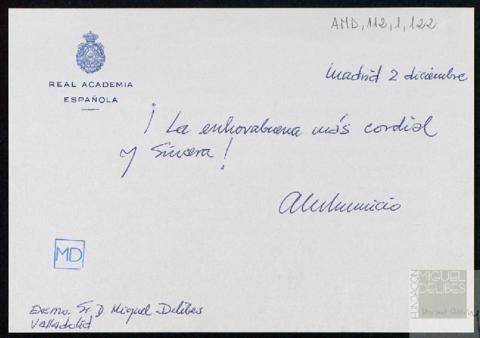 AMD,112,1,122
REAL ACADEMIA
ESPAÑOLA
Madrid 2 diciembre
¡ La enhorabuena más cordial
y sincera !
MD
Excmo. Sr. D. Miguel Delibes
Valladolid
FUNDACIÓN
MIGUEL
DELIBES